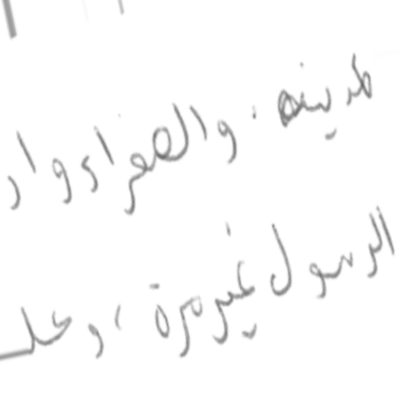 مدينه. والفقراء وار
الرسول غير مرة، وعلـ